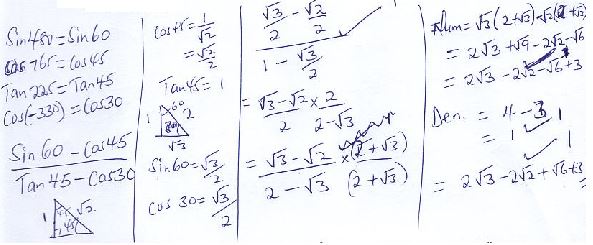 Sin 480 = Sin 60
Cos 765 = Cos 45
Tan 225 = Tan 45
Cos(-330) = Cos 30
Sin 60 - Cos 45
Tan 45 - Cos 30
1 √2
45
Cos 45 = 1/√2
= √2/2
Tan 45 = 1
60
1 2
30
√3
Sin 60 = √3/2
Cos 30 = √3/2
√3/2 - √2/2
1 - √3/2
= √3 - √2/2 × 2/2 - √3
= √3 - √2 × (2 + √3)
2 - √3 (2 + √3)
Num = √3(2+√3) - √2(2+√3)
= 2√3 + √9 - 2√2 - √6
= 2√3 - 2√2 - √6 + 3
Den = 4 - 3
= 1
= 2√3 - 2√2 + √6 + 3